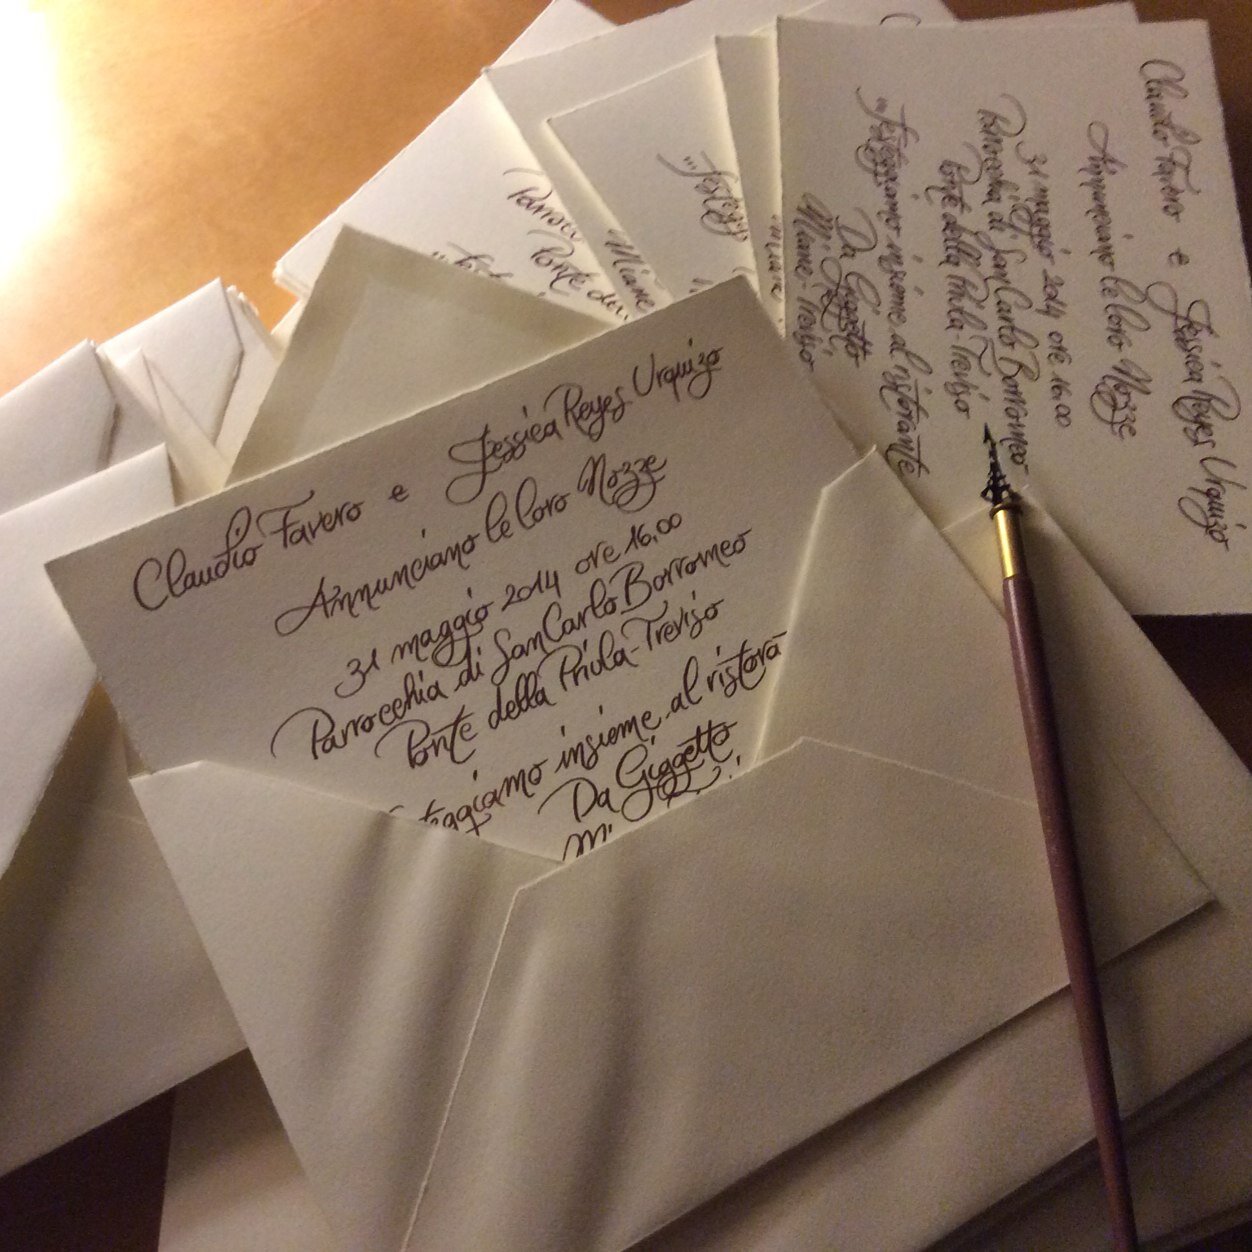 Claudio Favero e Jessica Reyes Urquizo
Annunciano le loro Nozze
31 maggio 2014 ore 16,00
Parrocchia di San Carlo Borromeo
Ponte della Priula-Treviso
teggiamo insieme al ristora
Da Gigetto
Mi
Claudio Favero e Jessica Reyes Urquizo
Annunciano le loro Nozze
31 maggio 2014 ore 16,00
Parrocchia di San Carlo Borromeo
Ponte della Priula-Treviso
"festeggiamo insieme al ristorante
Da Gigetto
Miane-Treviso
"festegg
Miane
Parrocc
Ponte de
"fest